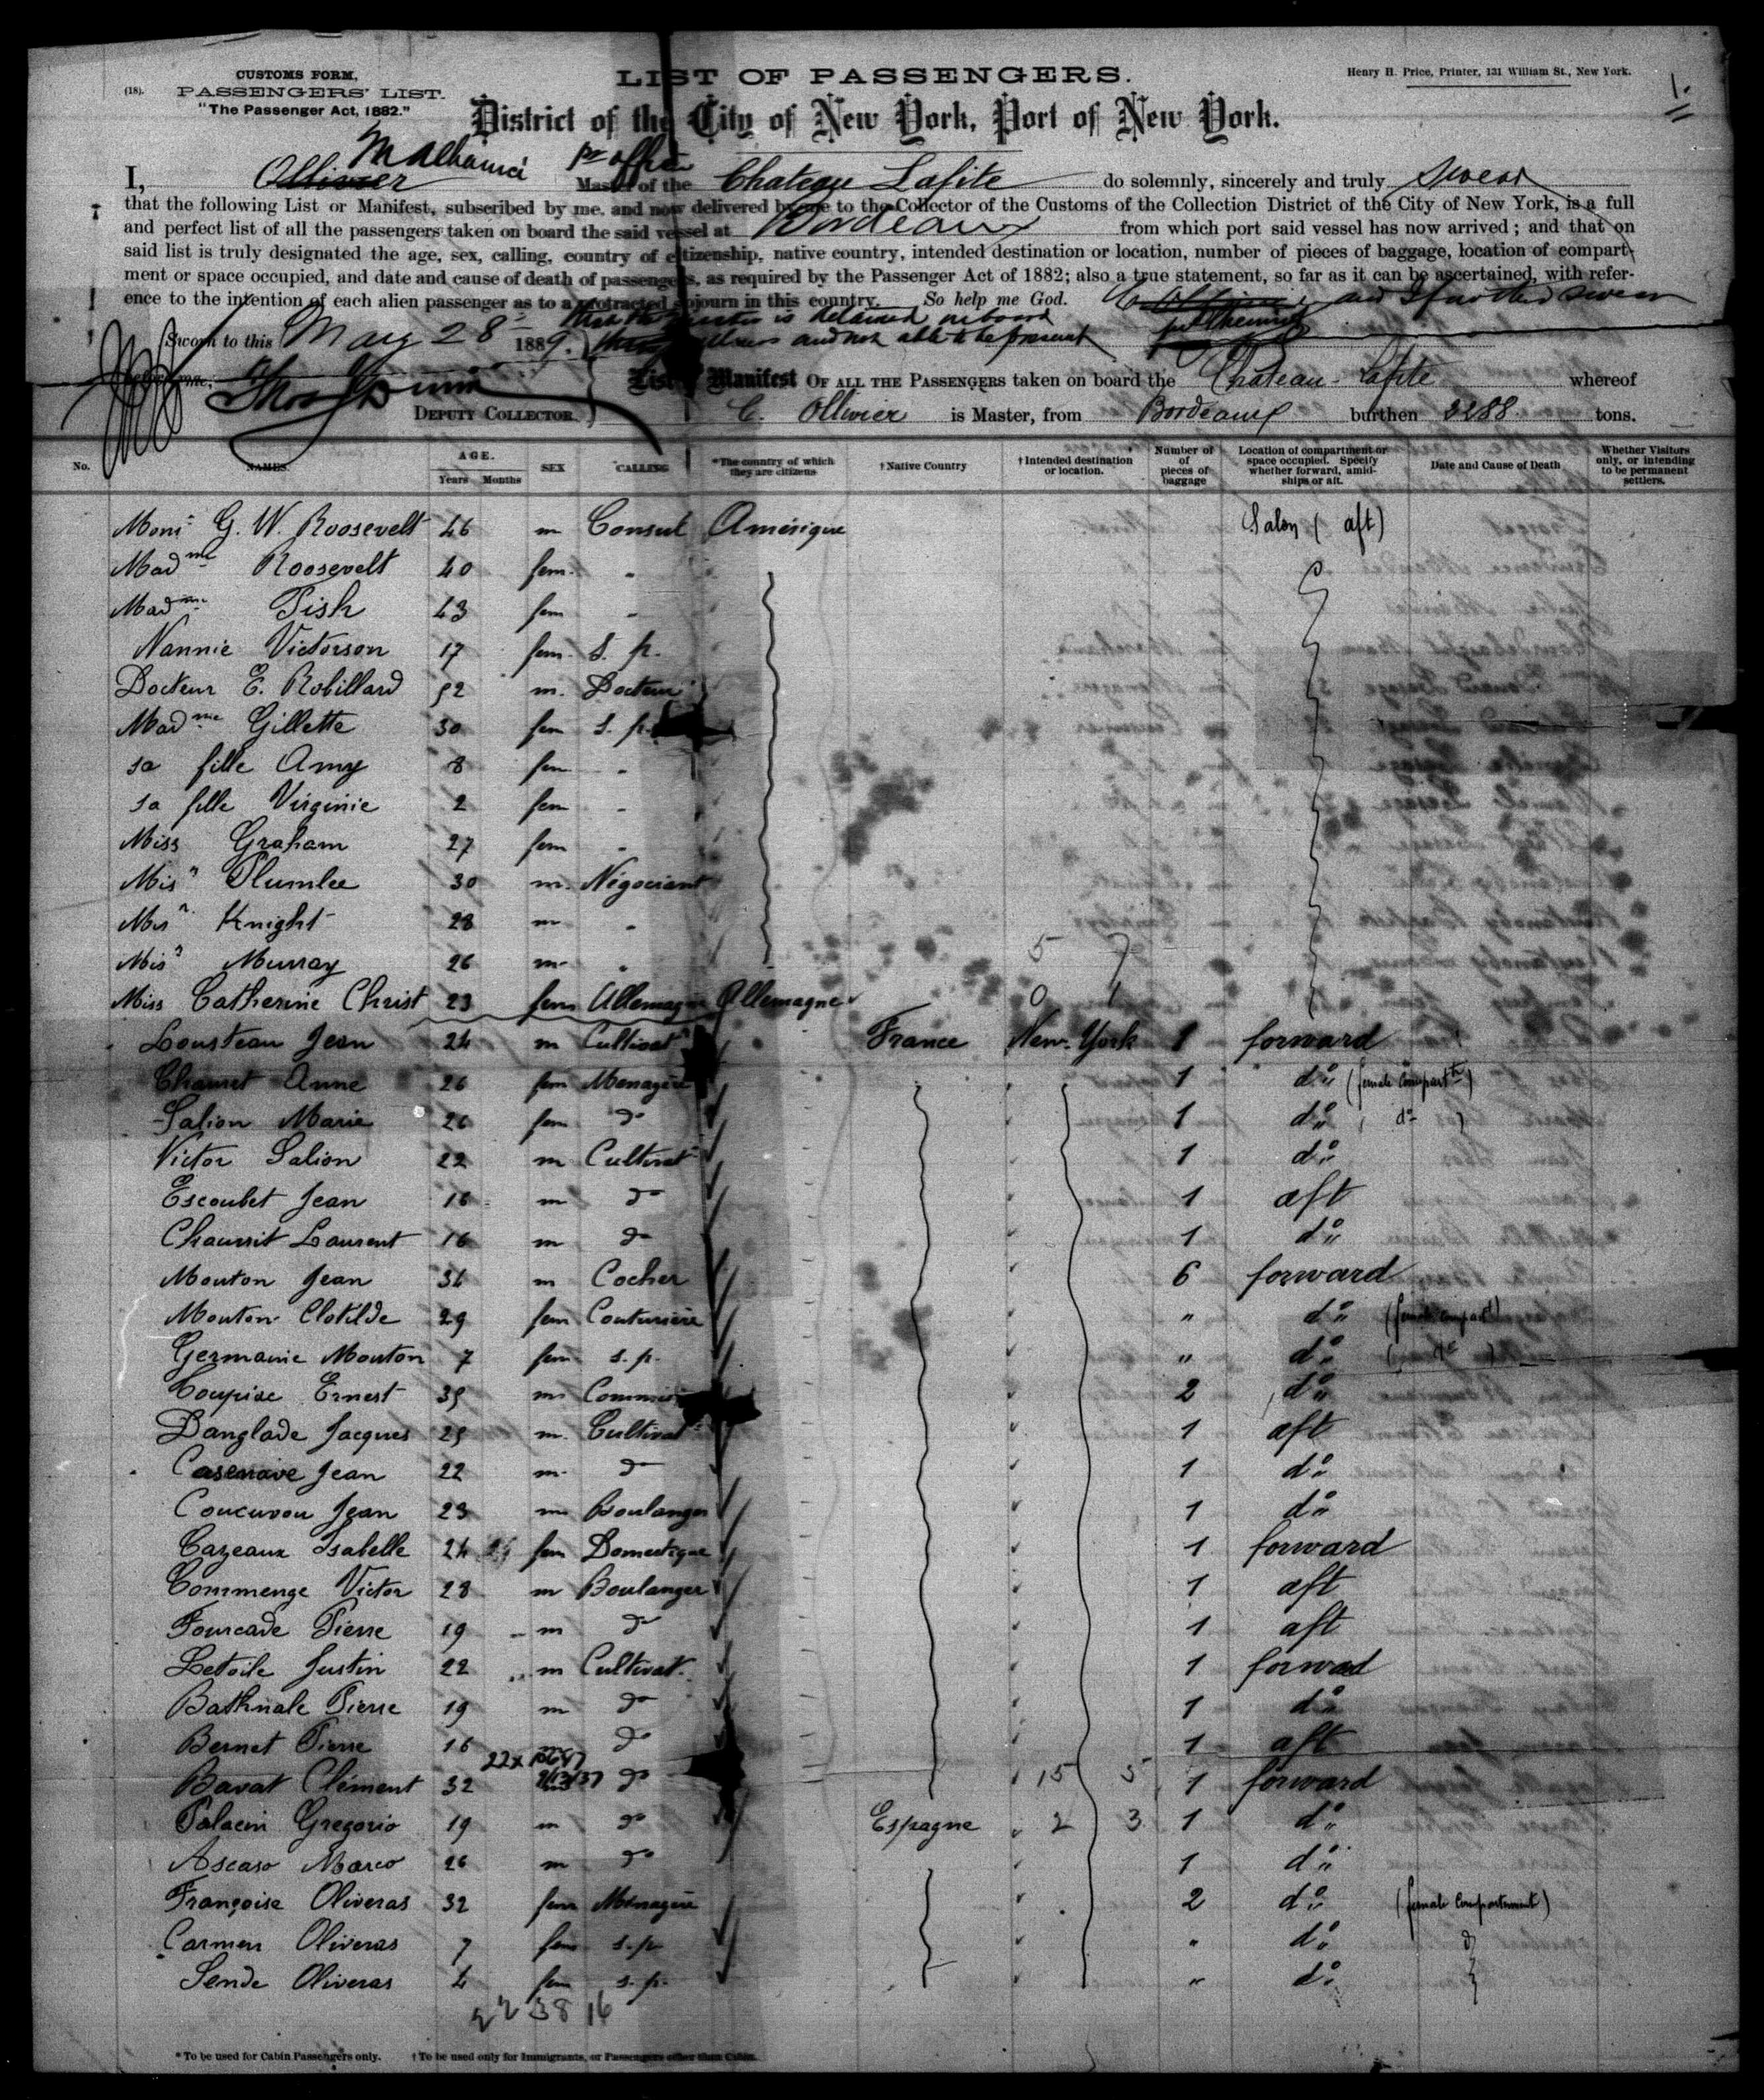 CUSTOMS FORM,
(18). PASSENGERS' LIST.
"The Passenger Act, 1882."
LIST OF PASSENGERS.
Henry H. Price, Printer, 131 William St., New York.
1.
District of the City of New York, Port of New York.
I, Ollivier Master of the Chateau Lafite do solemnly, sincerely and truly swear
that the following List or Manifest, subscribed by me, and now delivered by me to the Collector of the Customs of the Collection District of the City of New York, is a full
and perfect list of all the passengers taken on board the said vessel at Bordeaux from which port said vessel has now arrived; and that on
said list is truly designated the age, sex, calling, country of citizenship, native country, intended destination or location, number of pieces of baggage, location of compart-
ment or space occupied, and date and cause of death of passengers, as required by the Passenger Act of 1882; also a true statement, so far as it can be ascertained, with refer-
ence to the intention of each alien passenger as to a protracted sojourn in this country. So help me God. and I further swear
that the master is detained on board
Sworn to this May 28 1889. illness and not able to be present
before me,
List or Manifest OF ALL THE PASSENGERS taken on board the Château-Lafite whereof
DEPUTY COLLECTOR. C. Ollivier is Master, from Bordeaux burthen 2288 tons.
No. NAMES. AGE. Years Months SEX CALLING *The country of which they are citizens †Native Country †Intended destination or location. Number of pieces of baggage Location of compartment or space occupied. Specify whether forward, amidships or aft. Date and Cause of Death Whether Visitors only, or intending to be permanent settlers.
Monsr G. W. Roosevelt 46 m Consul Amérique Salon (aft)
Madme Roosevelt 40 fem. "
Madme Fish 43 fem "
Nannie Victorson 17 fem. s. p.
Docteur E. Robillard 52 m. Docteur
Madme Gillette 30 fem s. p.
sa fille Amy 8 fem "
sa fille Virginie 2 fem "
Miss Graham 27 fem "
Misr Plumlee 30 m. Négociant
Misr Knight 28 m "
Misr Murray 26 m "
5 7
Miss Catherine Christ 23 fem Allemagne Allemagne 0 1
Lousteau Jean 24 m Cultivat France New-York 1 forward
Chaurit Anne 26 fem Menagère 1 do (female compartt)
Salion Marie 26 fem do 1 do (do)
Victor Salion 22 m Cultivat 1 do
Escoubet Jean 16 m do 1 aft
Chaurrit Laurent 16 m do 1 do
Mouton Jean 36 m Cocher 6 forward
Mouton Clotilde 29 fem Couturière " do (female compart)
Germanie Mouton 7 fem s. p. " do (do)
Coupise Ernest 39 m 2 do
Danglade Jacques 25 m. Cultivat 1 aft
Casenave Jean 22 m. do 1 do
Coucuvou Jean 23 m Boulanger 1 do
Cazeaux Isabelle 24 fem Domestique 1 forward
Commenge Victor 28 m Boulanger 1 aft
Fourcade Pierre 19 m do 1 aft
Letoile Justin 22 m Cultivat. 1 forward
Bathnale Pierre 19 m do 1 do
Bernet Pierre 16 do 1 aft
Bavat Clément 32 do 15 5 1 forward
Palacin Gregorio 19 m do Espagne 2 3 1 do
Ascaso Marco 26 m do 1 do
Françoise Oliveras 32 fem Ménagère 2 do (female compartment)
Carmen Oliveras 7 fem s. p. " do
Sende Oliveras 4 fem s. p. " do
22 38 16
*To be used for Cabin Passengers only. †To be used only for Immigrants, or Passengers other than Cabin.